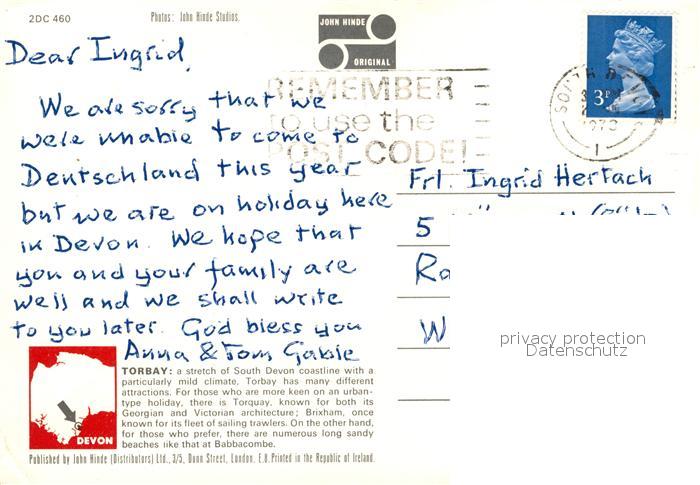 2DC 460
Photos: John Hinde Studios.
JOHN HINDE
ORIGINAL
Dear Ingrid,
We are sorry that we
were unable to come to
Deutschland this year
but we are on holiday here
in Devon. We hope that
you and your family are
well and we shall write
to you later. God bless you
Anna & Tom Gabie
REMEMBER
to use the
POST CODE!
3P
SOUTH DEVON
1973
1
Frl. Ingrid Hertach
5
Ra
W
privacy protection
Datenschutz
DEVON
TORBAY: a stretch of South Devon coastline with a
particularly mild climate, Torbay has many different
attractions. For those who are more keen on an urban-
type holiday, there is Torquay, known for both its
Georgian and Victorian architecture; Brixham, once
known for its fleet of sailing trawlers. On the other hand,
for those who prefer, there are numerous long sandy
beaches like that at Babbacombe.
Published by John Hinde (Distributors) Ltd., 3/5, Dunn Street, London, E.8. Printed in the Republic of Ireland.